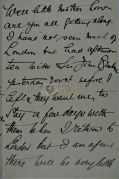 Well little mother how
are you all getting along
I have not seen much of
London but had afternoon
tea with Sir Jim
before I
left they want me to
Pay a few days with
them when I return to
London but I am afraid
there will be very little